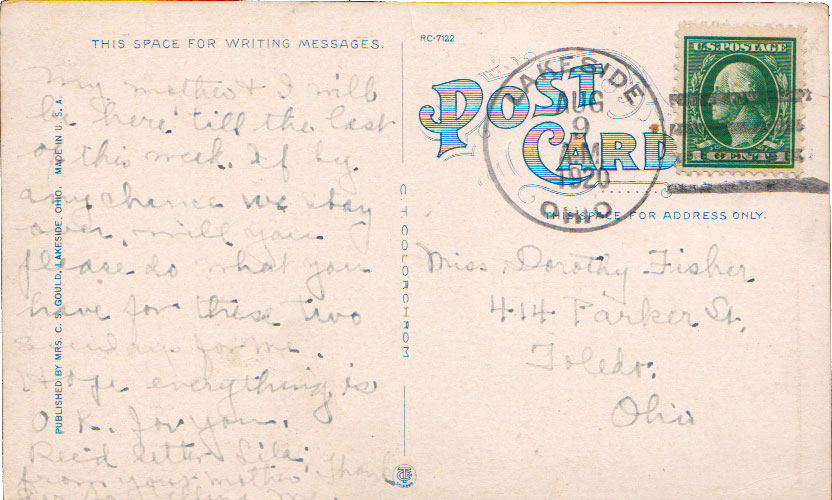 THIS SPACE FOR WRITING MESSAGES.
My mother & I will
be here till the last
of this week. If by
any chance we stay
over, will you
please do what you
have for these two
Sundays for me.
Hope everything is
O.K. for you.
Rec'd letter
from your mother. Thank
PUBLISHED BY MRS. C. S. GOULD, LAKESIDE, OHIO. MADE IN U. S. A.
C. T COLORCHROM
RC-7122
POST
CARD
LAKESIDE
AUG
9
AM
1920
OHIO
U.S. POSTAGE
1 CENT 1
THIS SPACE FOR ADDRESS ONLY.
Miss. Dorothy Fisher
414 Parker St.
Toledo.
Ohio